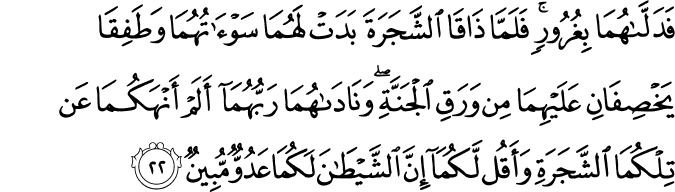 فَدَلَّىٰهُمَا بِغُرُورٍۚ فَلَمَّا ذَاقَا ٱلشَّجَرَةَ بَدَتۡ لَهُمَا سَوۡءَٰتُهُمَا وَطَفِقَا
يَخۡصِفَانِ عَلَيۡهِمَا مِن وَرَقِ ٱلۡجَنَّةِۖ وَنَادَىٰهُمَا رَبُّهُمَآ أَلَمۡ أَنۡهَكُمَا عَن
تِلۡكُمَا ٱلشَّجَرَةِ وَأَقُل لَّكُمَآ إِنَّ ٱلشَّيۡطَٰنَ لَكُمَا عَدُوّٞ مُّبِينٞ ٢٢